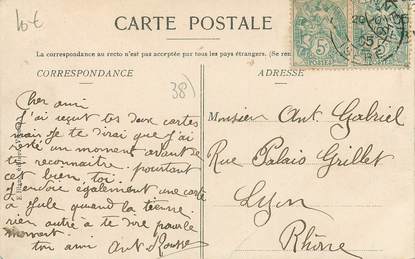 10 €
CARTE POSTALE
La correspondance au recto n'est pas acceptée par tous les pays étrangers. (Se ren
CORRESPONDANCE
ADRESSE
38)
5 5
POSTES
Cher ami
J'ai reçut tes deux cartes
mais je te dirai que j'ai
resté un moment avant de
te reconnaitre. pourtant
cet bien, toi.
J'envoie également une carte
a Jule quand la tienne
rien autre à te dire pour le
moment.
ton ami Ant
Monsieur Ant. Gabriel
Rue Palais Grillet
Lyon
Rhône